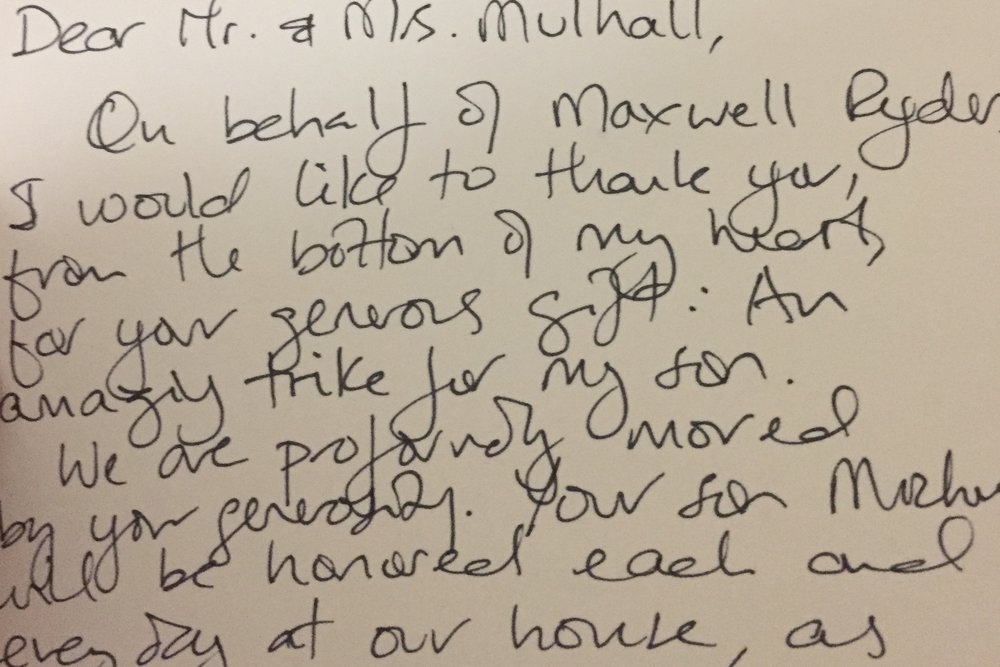 Dear Mr. & Mrs. Mulhall,
On behalf of Maxwell Ryder
I would like to thank you,
from the bottom of my heart,
for your generous gift: An
amazing trike for my son.
We are profoundly moved
by your generosity. Your son
will be honored each and
every day at our house, as